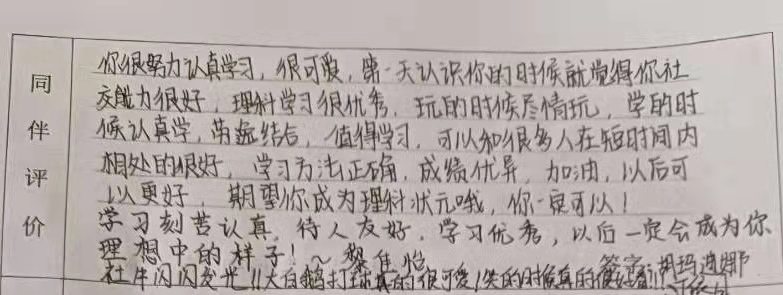 同伴评价
你很努力认真学习，很可爱，第一天认识你的时候就觉得你社
交能力很好，理科学习很优秀，玩的时候尽情玩，学的时
候认真学，劳逸结合，值得学习，可以和很多人在短时间内
相处的很好，学习方法正确，成绩优异，加油，以后可
以更好，期望你成为理科状元哦，你一定可以！
学习刻苦认真，待人友好，学习优秀，以后一定会成为你
理想中的样子！～黎佳怡
签字：胡玛迪娜
社牛闪闪发光!!大白鹅打球真的很可爱!笑的时候真的很好看!!